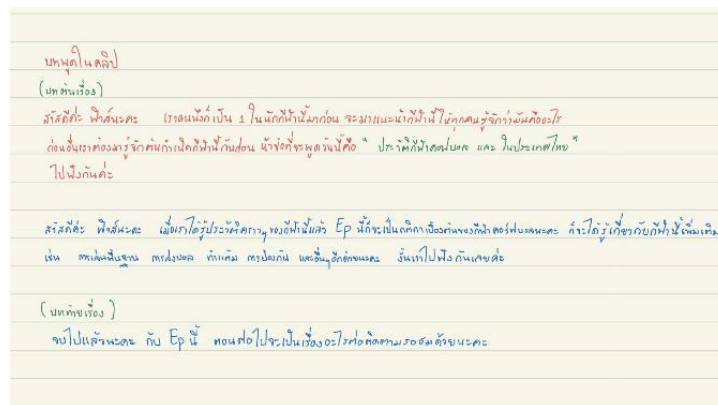 บทพูดในคลิป
(บทต้นเรื่อง)
สวัสดีค่ะ ฟ้าส์นะคะ เราคนนึงก็เป็น 1 ในนักกีฬานี้มาก่อน จะมาแนะนำกีฬานี้ให้ทุกคนรู้จักว่ามันคืออะไร
ก่อนอื่นเราต้องมารู้จักต้นกำเนิดกีฬานี้กันก่อน หัวข้อที่จะพูดวันนี้คือ " ประวัติกีฬาคอฟบอล และ ในประเทศไทย "
ไปฟังกันค่ะ
สวัสดีค่ะ ฟ้าส์นะคะ เมื่อเราได้รู้ประวัติคราวๆของกีฬานี้แล้ว Ep นี้ก็จะเป็นกติกาเบื้องต้นของกีฬาคอร์ฟบอลนะคะ ก็จะได้รู้เกี่ยวกับกีฬานี้เพิ่มเติม
เช่น การเล่นพื้นฐาน การส่งบอล ทำแต้ม การป้องกัน และอื่นๆอีกด้วยนะคะ งั้นเราไปฟังกันเลยค่ะ
(บทท้ายเรื่อง)
จบไปแล้วนะคะ กับ Ep นี้ ตอนต่อไปจะเป็นเรื่องอะไรต่อติดตามรอชมด้วยนะคะ